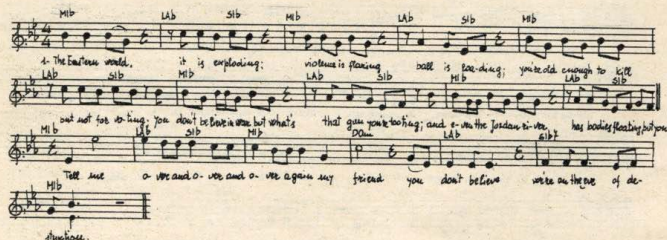 MIb LAb SIb MIb LAb SIb MIb
1- The Eastern world, it is exploding; violence is flaring ball is loa-ding; you're old enough to kill
LAb SIb MIb LAb SIb MIb LAb SIb
but not for vo-ting. You don't believe in war but what's that gun you're toting; and e-ven the Jordan ri-ver has bodies floating but you
MIb LAb SIb MIb DOm LAb SIb7
Tell me o-ver and o-ver and o-ver again my friend you don't believe we're on the eve of de-
MIb
struction.